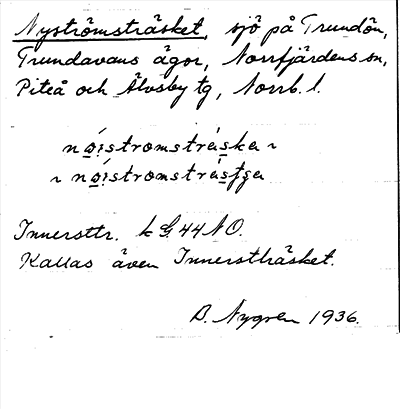 Nyströmsträsket, sjö på Trundön,
Trundavans ägor, Norrfjärdens sn,
Piteå och Älvsby tg, Norrb. l.
nǿi̯stromstráska ~
~ nǿi̯stromstrásʃga
Innersttr. k G. 44 NO.
Kallas även Innerstträsket.
B. Nygren 1936.